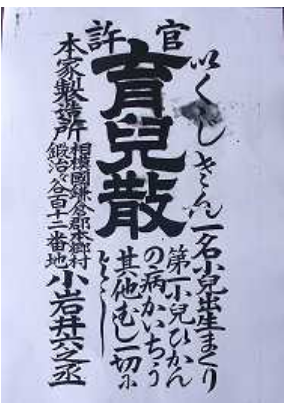 官許
いくじさん
一名小児出生まくり
育兒散
第一小児ひかん
の病かいちう
其他むし一切に
よろし
本家製造所
相模國鎌倉郡本郷村
鍛冶ヶ谷百十二番地
小岩井六之丞